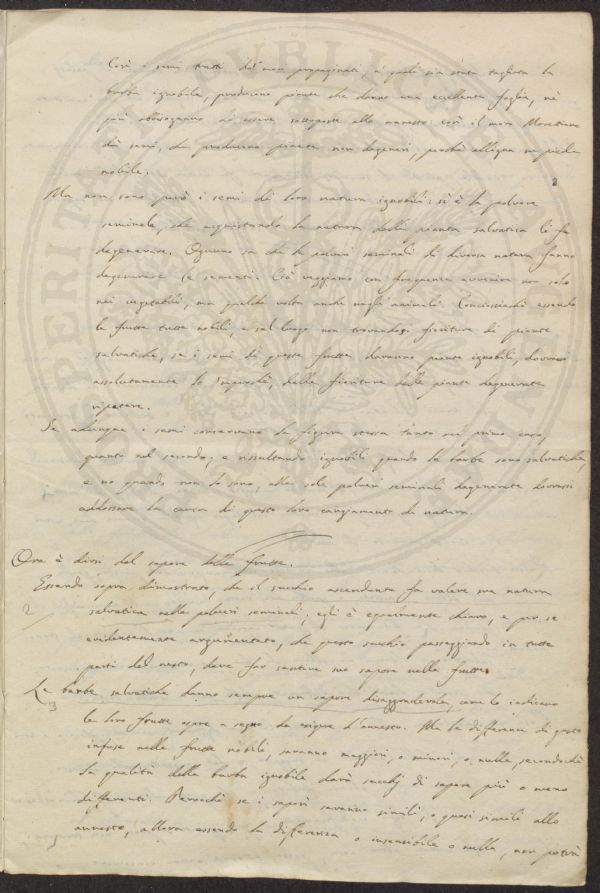 Così i semi tratti dai mori propaginati, a' quali sia stata tagliata la
barba ignobile, producono piante che danno una eccellente foglia, nè
più abbisognano di essere sottoposte allo annesto: così il moro Morettiano
dà semi, che producono piante non degeneri, perchè alligna su piede
nobile.
2
Ma non sono però i semi di loro natura ignobili: si è la polvere
seminale, che acquistando la natura della pianta salvatica li fa
degenerare. Ognuno sa che le polveri seminali di diversa natura fanno
degenerare le sementi. Ciò veggiamo con frequenza avvenire non solo
nei vegetabili, ma qualche volta anche negli animali. Conciossiachè essendo
le frutte tutte nobili, e sul luogo non trovandosi fioriture di piante
salvatiche, se i semi di queste frutte daranno piante ignobili, dovrassi
assolutamente lo, dalle fioriture delle piante degenerate
ripetere.
Se adunque i semi conservano la figura stessa tanto nel primo caso,
quanto nel secondo; e risultando ignobili quando le barbe sono salvatiche,
e no quando non lo sono, alle sole polveri seminali degenerate dovrassi
addossare la causa di questo loro cangiamento di natura.
Ora è dirsi del sapore delle frutte.
Essendo sopra dimostrato, che il succhio ascendente fa valere sua natura
2
salvatica nelle polveri seminali; egli è egualmente chiaro, e per se
evidentemente argumentato, che questo succhio passeggiando in tutte
parti del nesto, deve far sentire suo sapore nelle frutte.
Le barbe salvatiche danno sempre un sapore disaggradevole, come lo indicano
13
le loro frutte aspre a segno da esigere l'annesto. Ma le differenze di gusto
infuse nelle frutte nobili, saranno maggiori, o minori, o nulle, secondochè
la qualità della barba ignobile darà succhj di sapore più o meno
differenti. Perocchè se i sapori saranno simili, o quasi simili allo
annesto, allora essendo la differenza o insensibile o nulla, non potrà